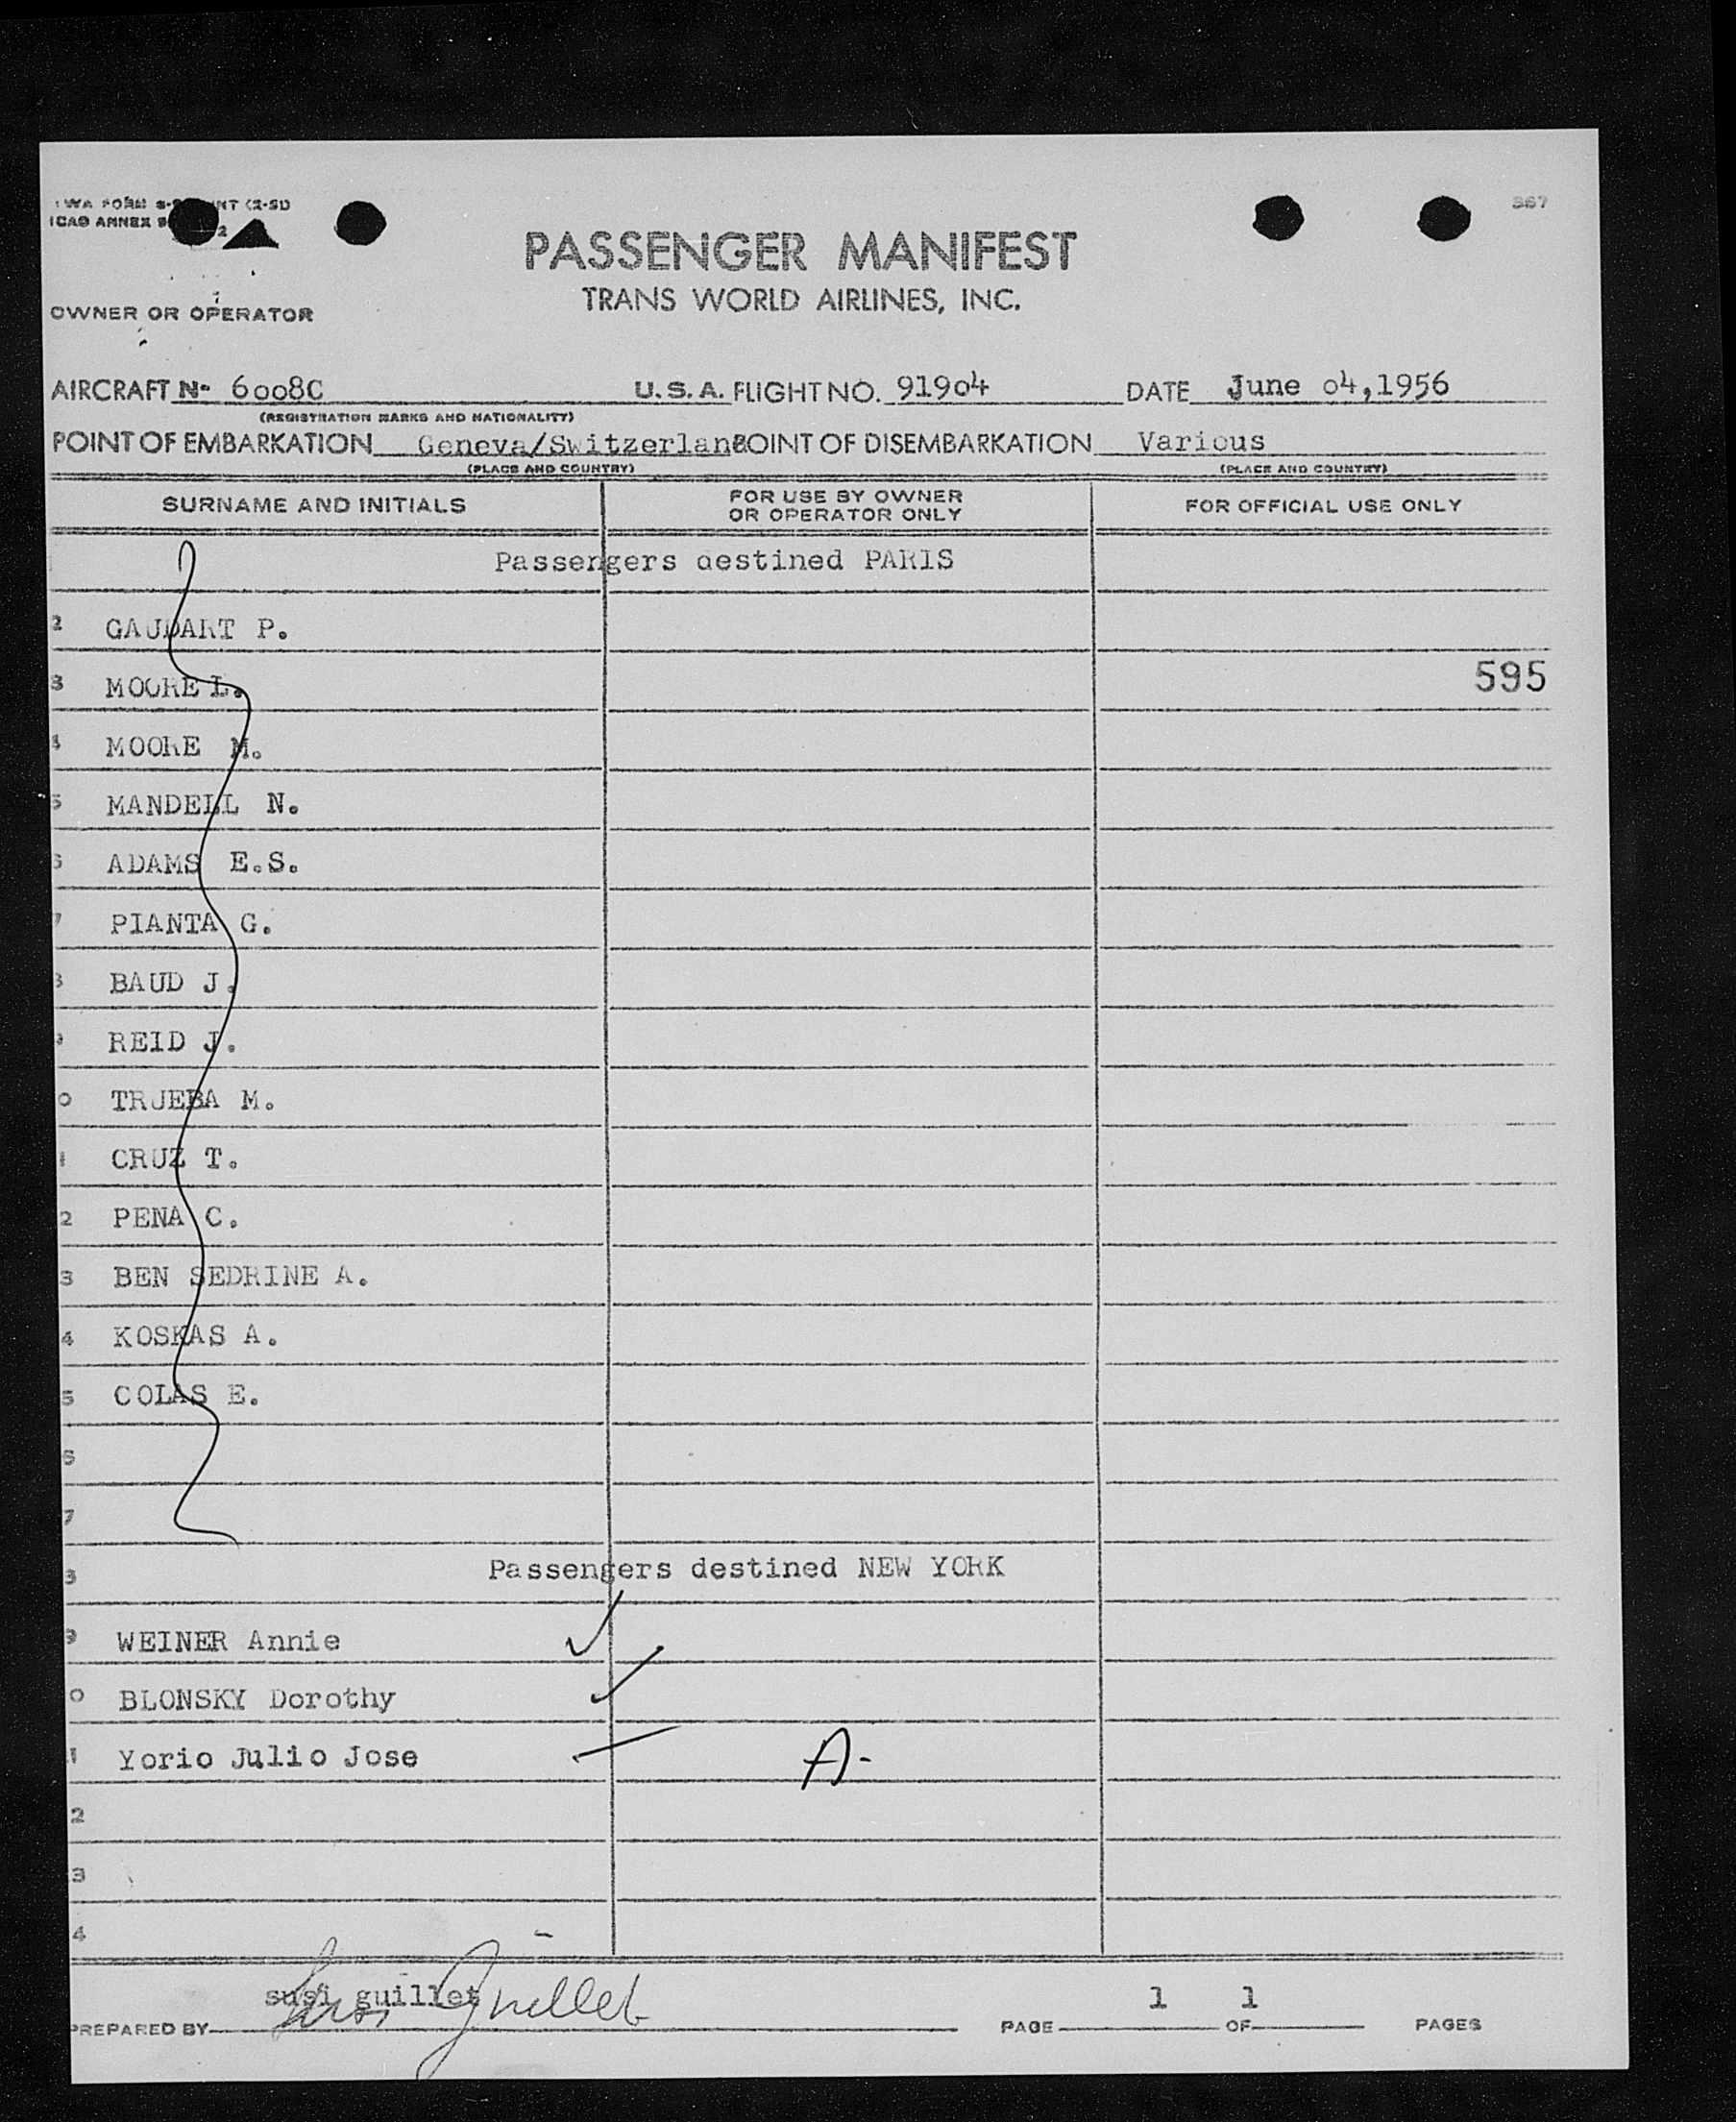 TWA FORM NT (2-51)
367
ICAO ANNEX 9 2
PASSENGER MANIFEST
TRANS WORLD AIRLINES, INC.
OWNER OR OPERATOR
AIRCRAFT No 6008C U.S.A. FLIGHT NO. 91904 DATE June 04,1956
(REGISTRATION MARKS AND NATIONALITY)
POINT OF EMBARKATION Geneva/Switzerland POINT OF DISEMBARKATION Various
(PLACE AND COUNTRY) (PLACE AND COUNTRY)
SURNAME AND INITIALS FOR USE BY OWNER OR OPERATOR ONLY FOR OFFICIAL USE ONLY
Passengers destined PARIS
2 GAUDART P.
3 MOORE L. 595
4 MOORE M.
5 MANDELL N.
6 ADAMS E.S.
7 PIANTA G.
8 BAUD J.
9 REID J.
0 TRUEBA M.
1 CRUZ T.
2 PENA C.
3 BEN SEDRINE A.
4 KOSKAS A.
5 COLAS E.
6
7
8 Passengers destined NEW YORK
9 WEINER Annie
0 BLONSKY Dorothy
1 Yorio Julio Jose A-
2
3
4
susi guillet
Susi Guillet
PREPARED BY PAGE 1 OF 1 PAGES